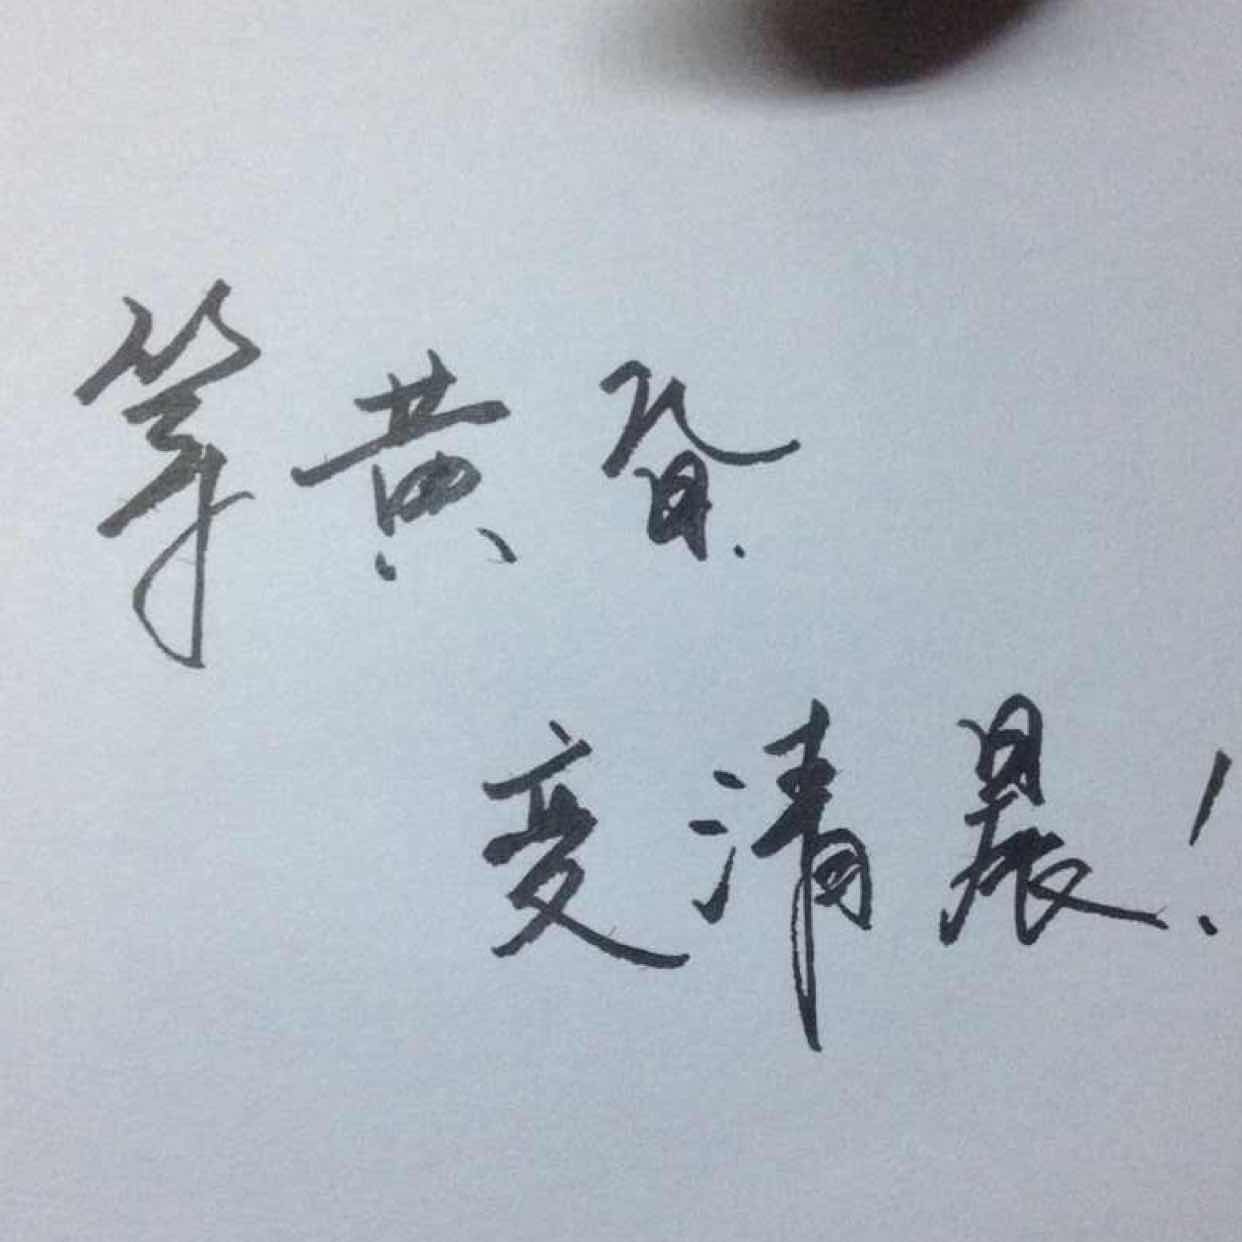 等黄昏
变清晨!